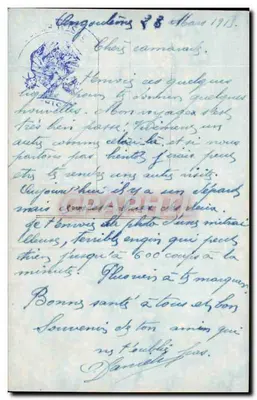 Angoulême 28 Mars 1918
Chers camarades.
J'envoie ces quelques
lignes pour te donner quelques
nouvelles. Mon voyage s'est
très bien passé. Vivement un
autre comme celui là et si nous
partons pas bientôt j'irais peut
être te rendre une autre visite.
Aujourd'hui il y a un départ
mais
Je t'envoie la photo d'une mitrail
leuse, terrible engin qui peut
tirer jusqu'à 600 coups à la
minute. Plus rien à te marquer.
Bonne santé à tous et bon
Souvenir de ton ami qui
ne t'oublie